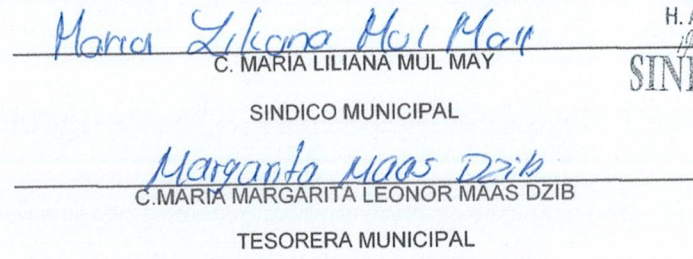 Maria Liliana Mul May
H. A
C. MARIA LILIANA MUL MAY
SIND
SINDICO MUNICIPAL
Margarita Maas Dzib
C.MARIA MARGARITA LEONOR MAAS DZIB
TESORERA MUNICIPAL